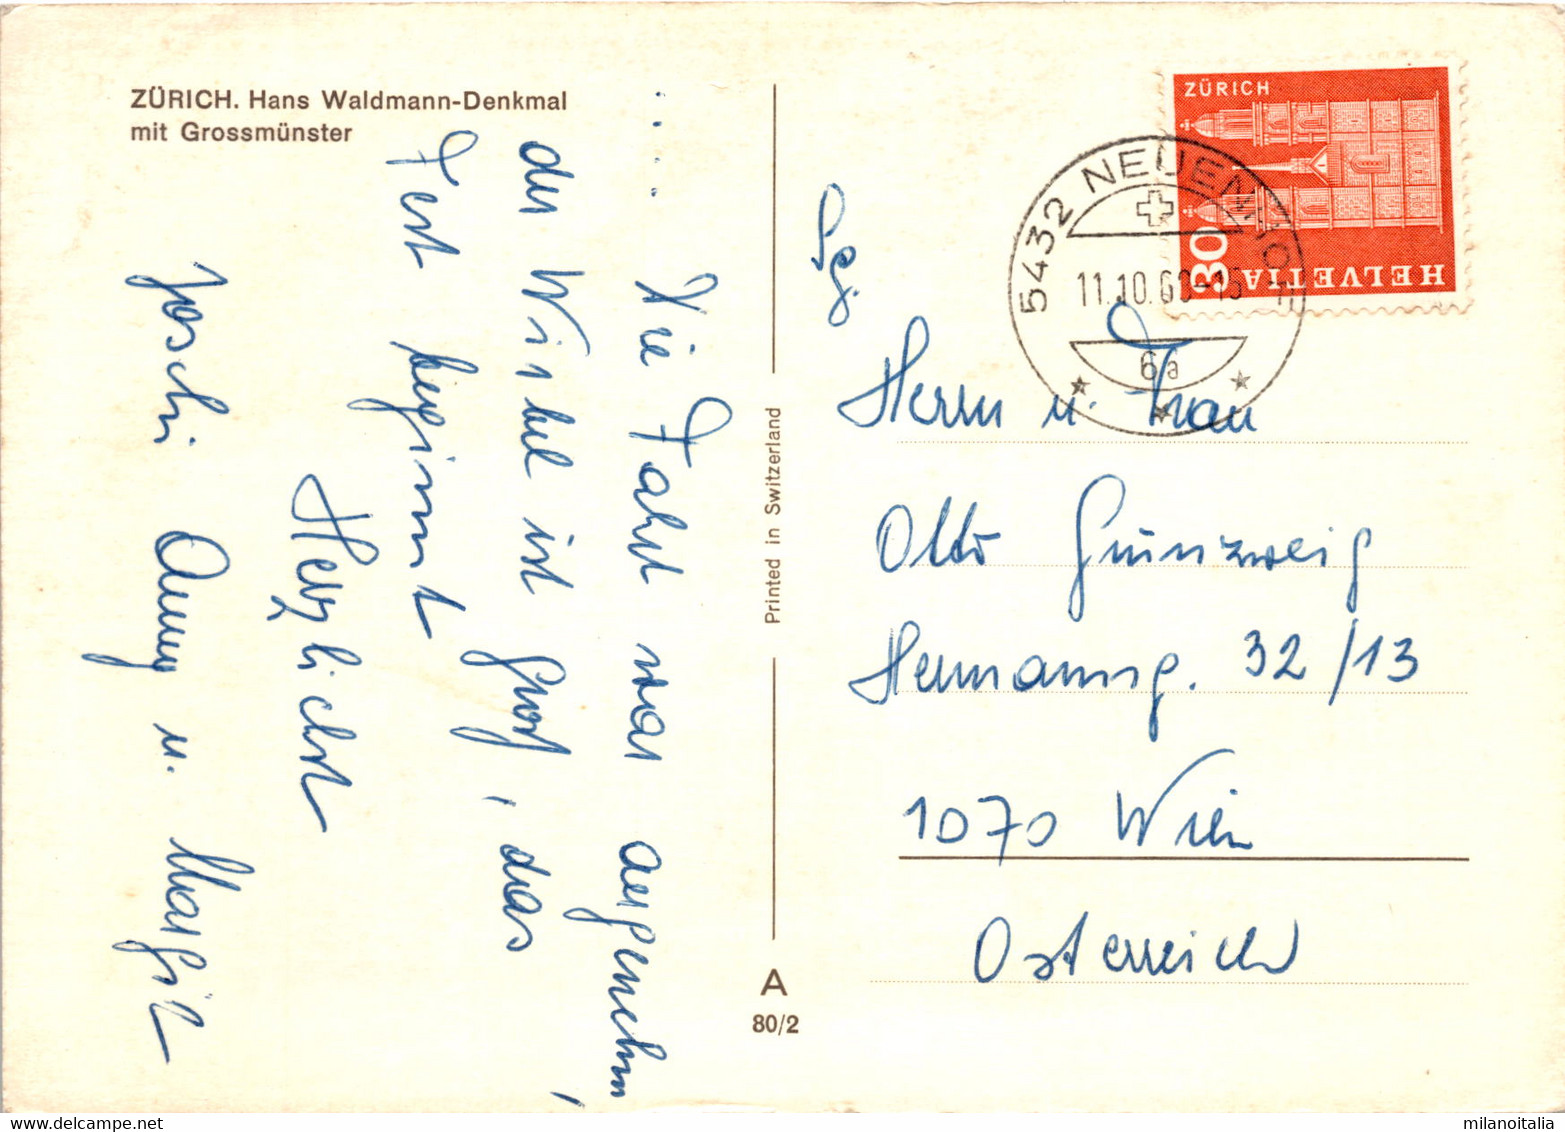 ZÜRICH. Hans Waldmann-Denkmal
mit Grossmünster
. . . .
Die Fahrt war angenehm,
der Wirbel ist groß, das
Fest beginnt
Herzlichst
Joschi Anny u. Margit
Printed in Switzerland
A
80/2
ZÜRICH
30
HELVETIA
5432 NEUENHOF
11.10.69-15
6a
Herrn u. Frau
Otto Grünzweig
Hermanng. 32/13
1070 Wien
Österreich
milanoitalia